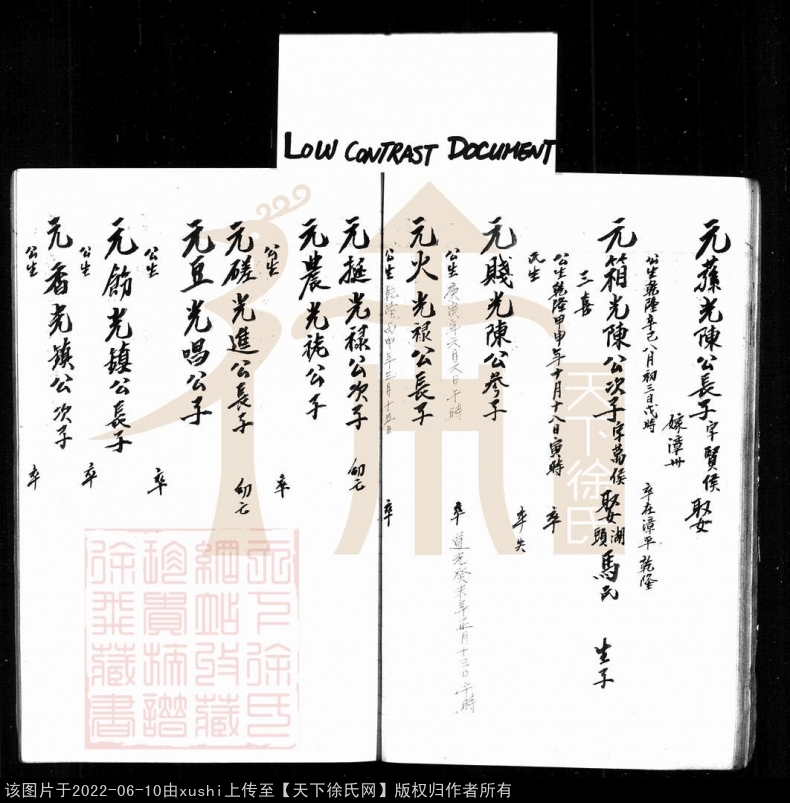 LOW CONTRAST DOCUMENT
元蓀光陳公長子字賢侯娶
嫁漳州
公生乾隆辛巳八月初三日戌時 卒在漳平乾隆
元箱光陳公次子字萬侯娶湖頭馬氏 生子
三喜
公生乾隆甲申年十月十八日寅時 卒
氏生 卒失
元賤光陳公參子
公生庚寅年六月六日午時 卒 道光癸未年正月十三日午時
元火光禄公長子
公生乾隆丙申年三月十五日 卒
元挺光禄公次子 幼亡
元農光 公子
公生 卒
元磋光進公長子 幼亡
元豆光唱公子
公生 卒
元飭光鎮公長子
公生 卒
元香光鎮公次子
公生 卒
天下徐氏
天下徐氏
網站收藏
珍貴族譜
徐飛藏書
该图片于2022-06-10由xushi上传至【天下徐氏网】版权归作者所有